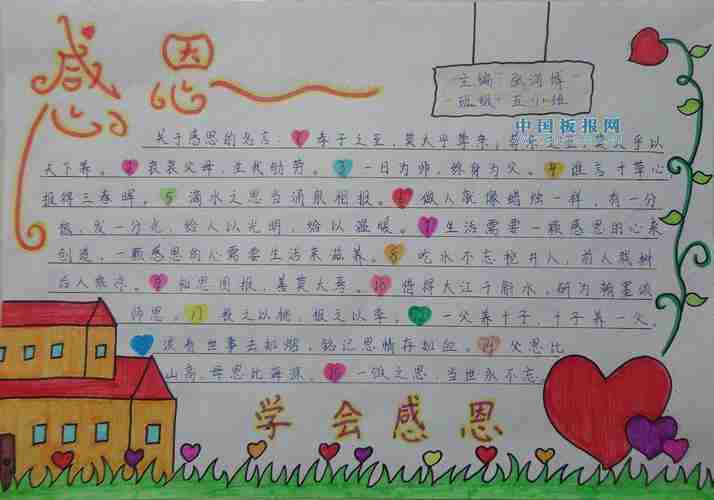 感恩
主编 张润博
班级 五(1)班
中国板报网
关于感恩的名言：1 孝子之至，莫大乎尊亲，
莫大乎以
天下养。2 哀哀父母，生我劬劳。3 一日为师，终身为父。4 谁言寸草心，
报得三春晖。5 滴水之恩当涌泉相报。 做人就像蜡烛一样，有一分
热，发一分光，给人以光明，给以温暖。7 生活需要一颗感恩的心来
创造，一颗感恩的心需要生活来滋养。8 吃水不忘挖井人，前人栽树
后人乘凉。9 知恩图报，善莫大焉。10 借得大江千斛水，研为翰墨颂
师恩。11 投之以桃，报之以李。 一父养十子，十子养一父。
淡看世事去如烟，铭记恩情存如血。14 父恩比
山高，母恩比海深。15 一饭之恩，当世永不忘。
学会感恩